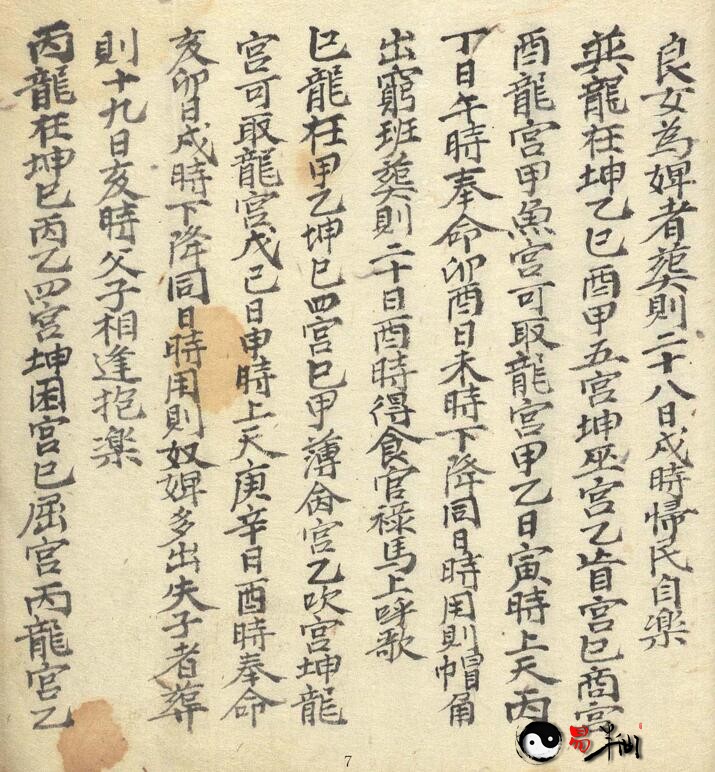 良女為婢者葬則二十八日戌時帰民自楽
巽龍在坤乙巳酉甲五宮坤巫宮乙盲宮巳商宮
酉龍宮甲魚宮可取龍宮甲乙日寅時上天丙
丁日午時奉命卯酉日未時下降同日時用則帽角
出窮班葬則二十日酉時得食官祿馬上呼歌
巳龍在甲乙坤巳四宮巳甲薄宮乙吹宮坤龍
宮可取龍宮戊己日申時上天庚辛日酉時奉命
亥卯日戌時下降同日時用則奴婢多出失子者葬
則十九日亥時父子相逢抱楽
丙龍在坤巳丙乙四宮坤困宮巳屈宮丙龍宮乙
7
易半仙